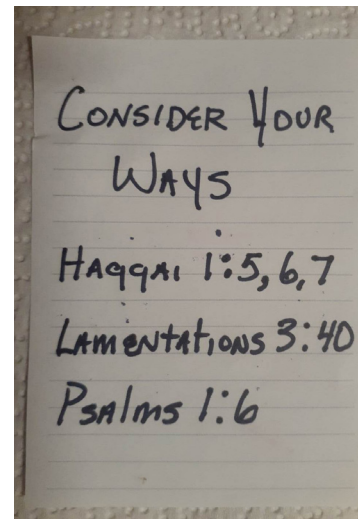 Consider Your
Ways
Haggai 1:5,6,7
Lamentations 3:40
Psalms 1:6